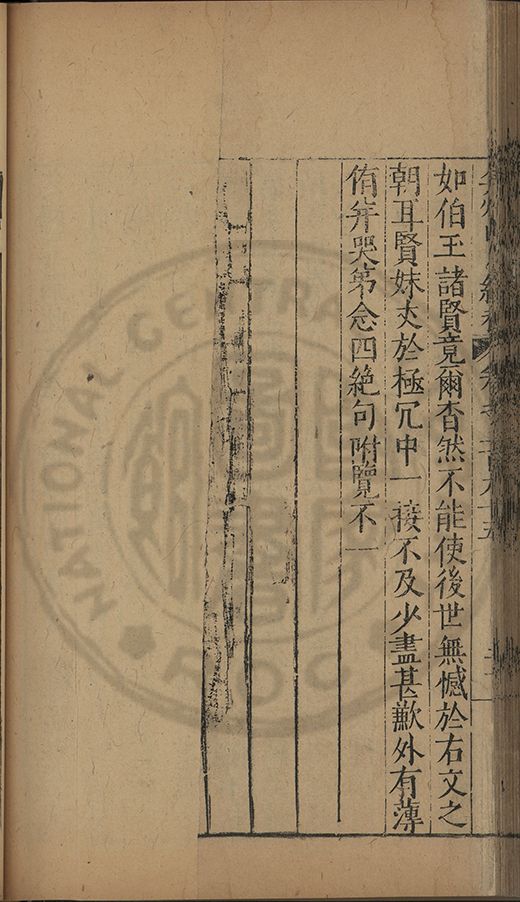 如伯王諸賢竟爾杳然不能使後世無憾於右文之
朝耳賢妹丈於極冗中一接不及少盡甚歉外有薄
侑并哭第念四絶句附覽不一
NATIONAL CENTRAL